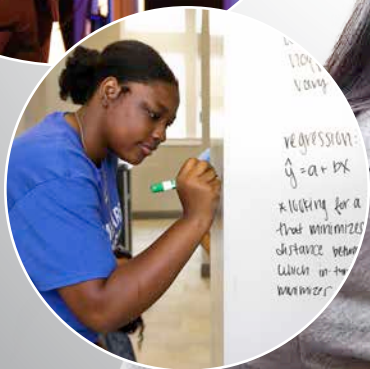 vary
regression:
ŷ = a + bx
* looking for a
that minimizes
distance betwe
which in tur
minimizes